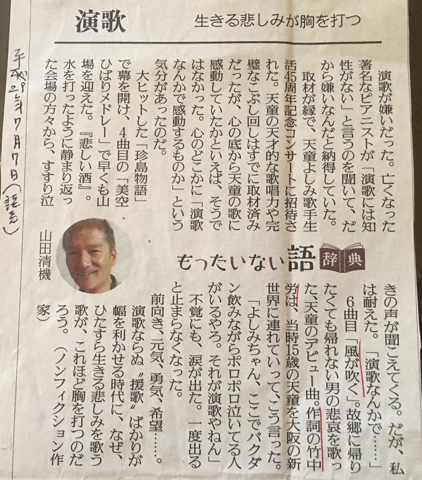 演歌
生きる悲しみが胸を打つ
演歌が嫌いだった。亡くなった
著名なピアニストが「演歌には知
性がない」と言うのを聞いて、だ
から嫌いなんだと納得していた。
取材が縁で、天童よしみ歌手生
活45周年記念コンサートに招待さ
れた。天童の天才的な歌唱力や完
璧なこぶし回しはすでに取材済み
だったが、心の底から天童の歌に
感動していたかといえば、そうで
はなかった。心のどこかに「演歌
なんかで感動するものか」という
気分があったのだ。
大ヒットした「珍島物語」
で幕を開け、4曲目の「美空
ひばりメドレー」で早くも山
場を迎えた。『悲しい酒』。
水を打ったように静まり返っ
た会場の方々から、すすり泣
もったいない語辞典
山田清機
きの声が聞こえてくる。だが、私
は耐えた。「演歌なんかで……」
6曲目「風が吹く」。故郷に帰り
たくても帰れない男の悲哀を歌っ
た、天童のデビュー曲。作詞の竹中
労は、当時15歳の天童を大阪の新
世界に連れていって、こう言った。
「よしみちゃん、ここでバクダ
ン飲みながらポロポロ泣いてる人
がいるやろ。それが演歌やねん」
不覚にも、涙が出た。一度出る
と止まらなくなった。
前向き、元気、勇気、希望……。
演歌ならぬ〝援歌〟ばかりが
幅を利かせる時代に、なぜ、
ひたすら生きる悲しみを歌う
歌が、これほど胸を打つのだ
ろう。（ノンフィクション作
家）
平成29年7月7日(読売)